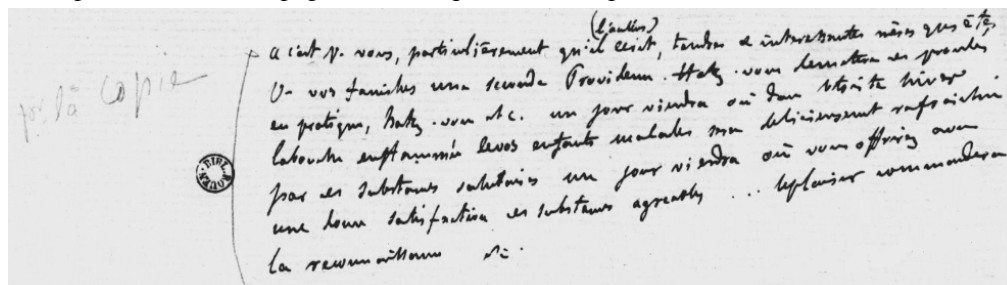 (l'auteur)
a c'est p. vous, particulièrement qu'il écrit, tendres et interessantes mères qui êtes
p. vos familles une seconde Providence. Hatez-vous de mettre ces procédés
en pratique, hatez-vous etc. un jour viendra où dans triste hiver
la bouche enflammée de vos enfants malades sera delicieusement rafraichie
par ces substances salutaires un jour viendra où vous offrirez avec
une douce satisfaction ces substances agreables ... le plaisir commandera
la reconnaissance
copie